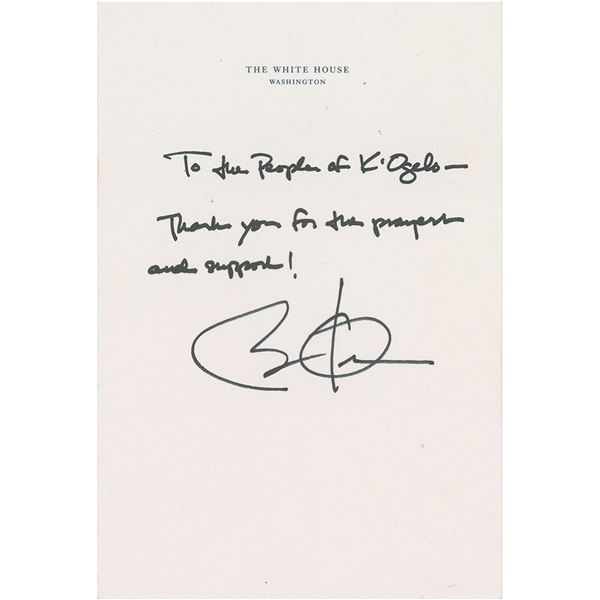 THE WHITE HOUSE
WASHINGTON
To the People of K'Ogelo —
Thank you for the prayers
and support!